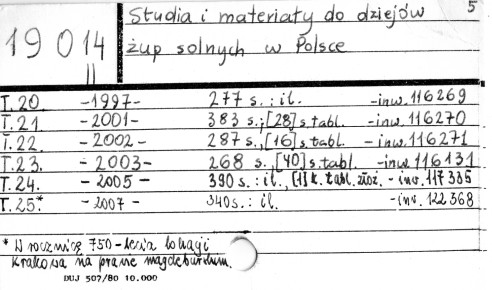 Studia i materiały do dziejów 5
19 014 żup solnych w Polsce
II
T.20. -1997- 277 s.: il. -inw. 116269
T.21. -2001- 383 s.; [28] s. tabl. -inw. 116270
T.22. -2002- 287 s., [16] s. tabl. -inw. 116271
T.23. -2003- 268 s. [40] s. tabl. -inw. 116131
T.24. -2005- 390 s.: il., [1] k. tabl. złoż. -inw. 117385
T.25.* -2007- 340 s.: il. -inw. 122368
* W rocznicę 750-lecia lokacji
Krakowa na prawie magdeburskim.
DUJ 507/80 10.000